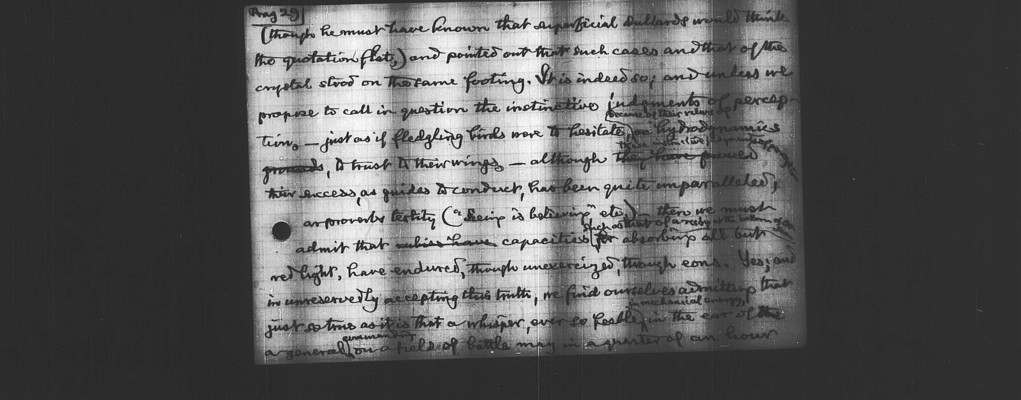 Prag 29
(though he must have known that superficial dullards would think
the quotation flat,) and pointed out that such cases and that of the
crystal stood on the same footing. It is indeed so; and unless we
propose to call in question the instinctive judgments of percep-
tion, — just as if fledgling birds were to hesitate, on hydrodynamics
grounds, to trust to their wings, — although they have proved
their success, as guides to conduct, has been quite unparalleled,
as proverbs testify ("Seeing is believing" etc.) — then we must
such as that of a ruby
admit that rubies have capacities for absorbing all but
red light, have endured, though unexercized, through eons. Yes; and
in unreservedly accepting this truth, we find ourselves admitting that
in mechanical energy,
just so true as it is that a whisper, ever so feeble, in the ear of the
commanding
a general on a field of battle may in a quarter of an hour